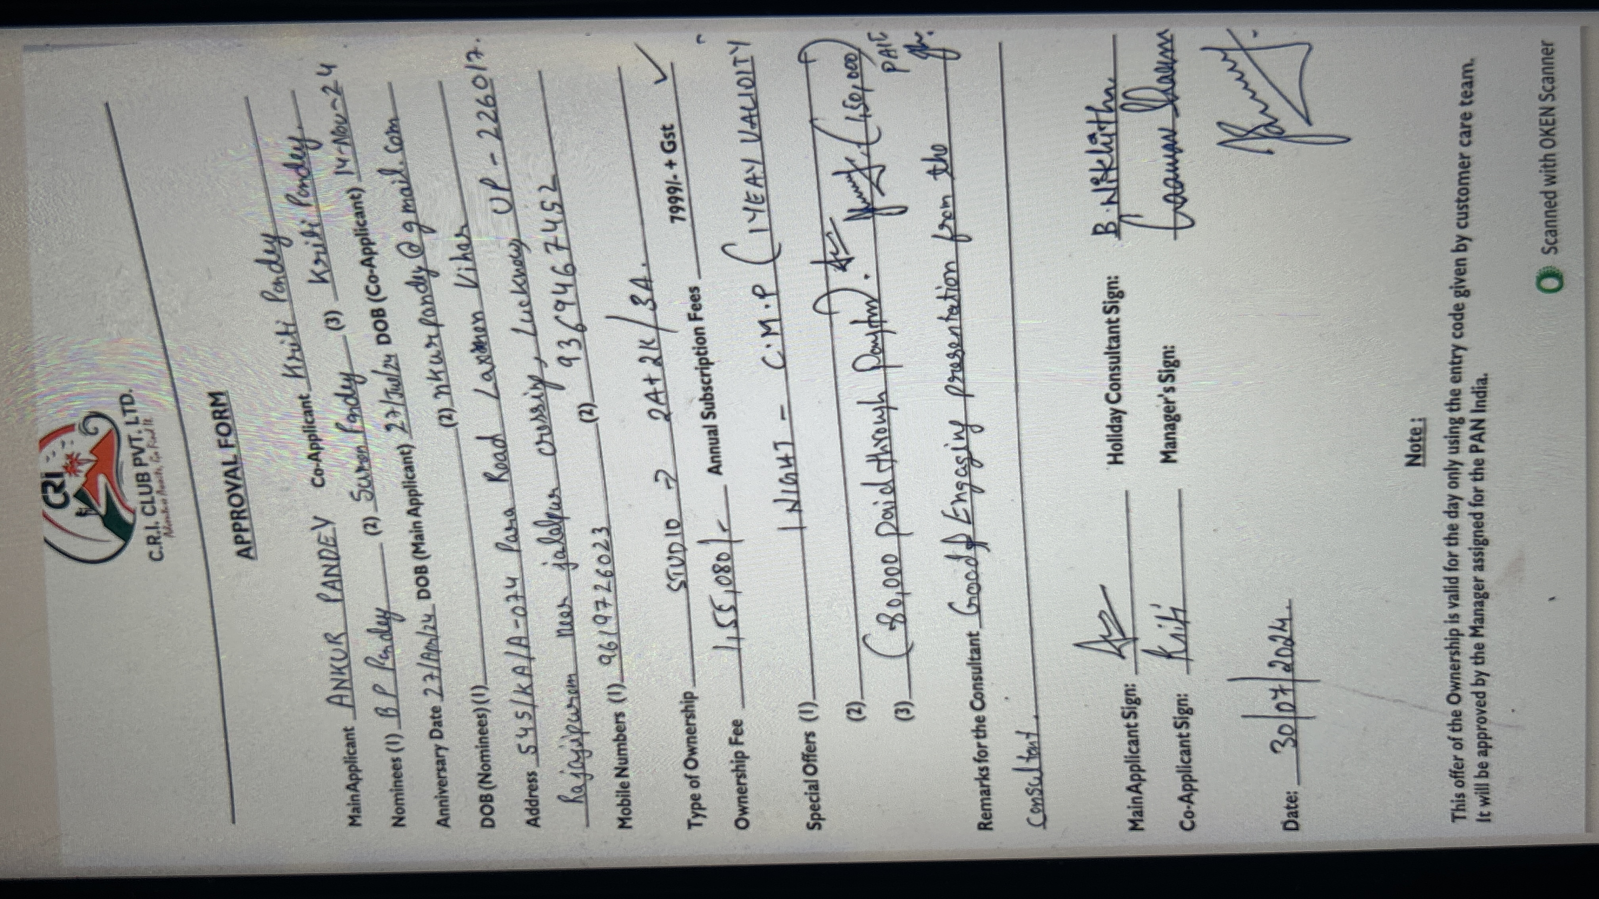 CRI
C.R.I. CLUB PVT. LTD.
APPROVAL FORM
Main Applicant ANKUR PANDEY Co-Applicant Kriti Pandey
Nominees (1) B P Pandey (2) Suren Pandey (3) Kriti Pandey
Anniversary Date 27/Apr/24 DOB (Main Applicant) 27/Jul/24 DOB (Co-Applicant) 14-Nov-24
DOB (Nominees) (1) (2) nkurpandy@gmail.com
Address 545/KA/A-074 Para Road Laxmon Vihar
Rajajipuram neer jalalpur crossing, Lucknow UP - 226017.
Mobile Numbers (1) 9619726023 (2) 9369467452
Type of Ownership STUDIO → 2A+2K/3A.
Ownership Fee 1,55,080/- Annual Subscription Fees 7999/- + Gst ✓
Special Offers (1) 1 NIGHT - C.M.P (1 YEAY VALIDITY)
(2)
(3) (80,000 paid through Paytm). (1,50,000) PAIE
Remarks for the Consultant Good & Engaging presentation from the
Consultant.
Main Applicant Sign: Holiday Consultant Sign: B. Nikhitha
Co-Applicant Sign: Kriti Manager's Sign:
Date: 30/07/2024.
Note :
This offer of the Ownership is valid for the day only using the entry code given by customer care team.
It will be approved by the Manager assigned for the PAN India.
Scanned with OKEN Scanner